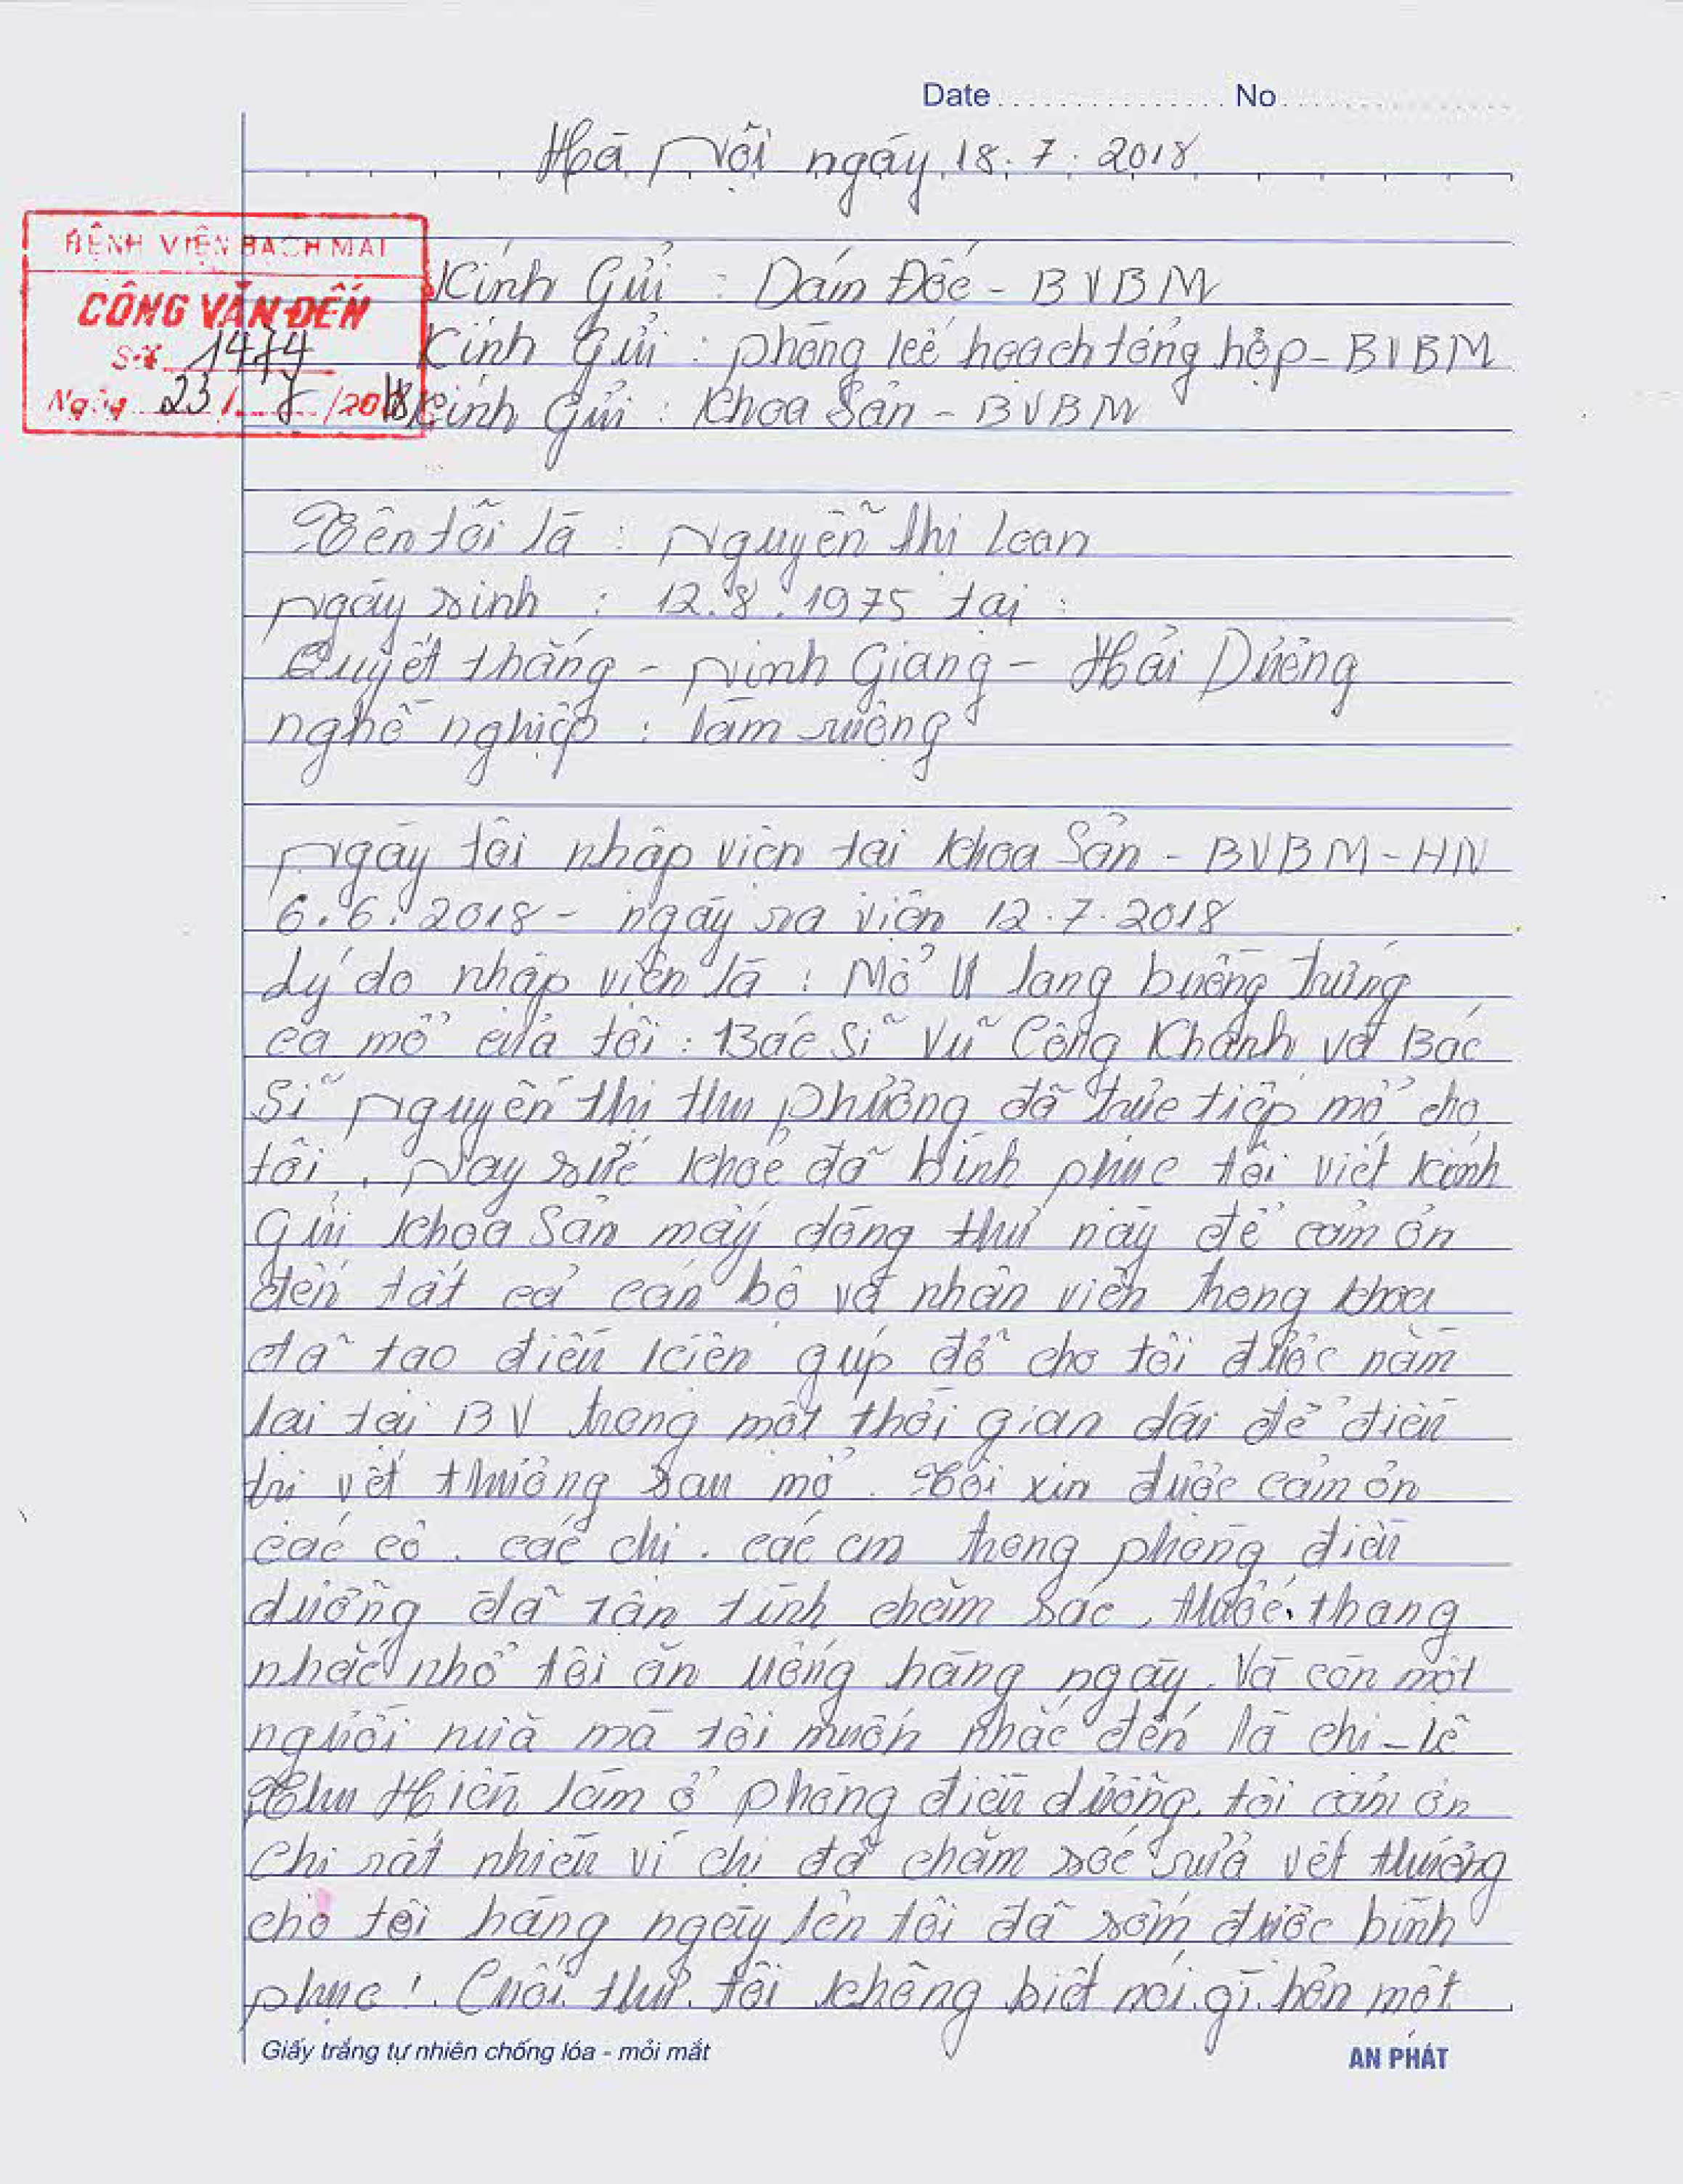 Date .............. No ..............
Hà Nội ngày 18.7.2018
BỆNH VIỆN BẠCH MAI
CÔNG VĂN ĐẾN
Số 1474
Ngày 23/ 7 /2018
Kính Gửi : Dám Đốc - BVBM
Kính Gửi : phòng kế hoạch tổng hợp - BVBM
Kính Gửi : Khoa Sản - BVBM
Tên tôi là : Nguyễn thị Loan
Ngày sinh : 12.8.1975 tại :
Quyết thắng - Ninh Giang - Hải Dương
nghề nghiệp : làm ruộng
Ngày tôi nhập viện tại khoa Sản - BVBM - HN
6.6.2018 - ngày ra viện 12.7.2018
Lý do nhập viện là : Mổ U lang buồng trứng
ca mổ của tôi : Bác Sĩ Vũ Công Khanh và Bác
Sĩ Nguyễn thị thu phương đã trực tiếp mổ cho
tôi. Nay sức khỏe đã bình phục tôi viết kính
Gửi khoa Sản mấy dòng thư này để cảm ơn
đến tất cả cán bộ và nhân viên trong khoa
đã tạo điều kiện giúp đỡ cho tôi được nằm
lại tại BV trong một thời gian dài để điều
trị vết thương sau mổ. Tôi xin được cảm ơn
các cô. các chị. các em trong phòng điều
dưỡng đã tận tình chăm sóc, thuốc thang
nhắc nhở tôi ăn uống hàng ngày. Và còn một
người nữa mà tôi muốn nhắc đến là chị - Lê
Thu Hiền làm ở phòng điều dưỡng, tôi cảm ơn
Chị rất nhiều vì chị đã chăm sóc rửa vết thương
cho tôi hàng ngày lên tôi đã sớm được bình
phục !. Cuối thư tôi không biết nói gì hơn một
Giấy trắng tự nhiên chống lóa - mỏi mắt
AN PHÁT